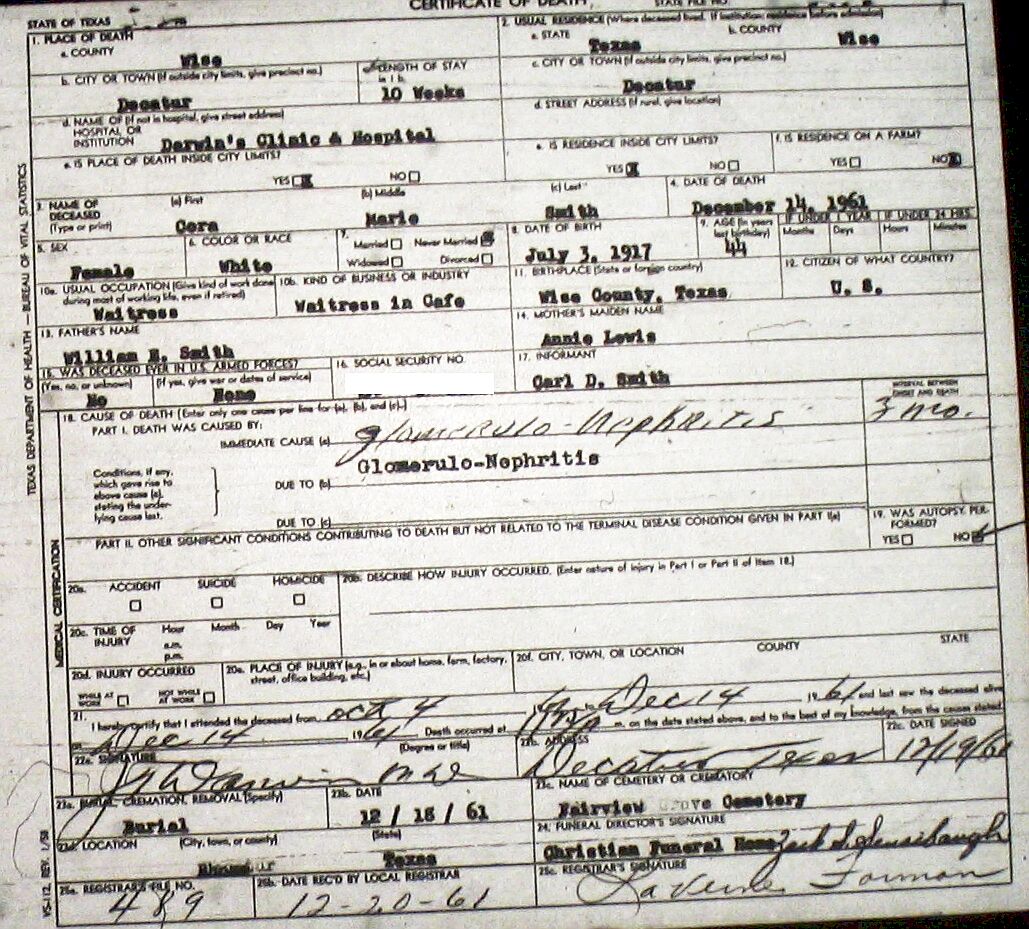 CERTIFICATE OF DEATH
STATE FILE NO.
STATE OF TEXAS
1. PLACE OF DEATH
a. COUNTY
Wise
2. USUAL RESIDENCE (Where deceased lived. If institution: residence before admission)
a. STATE
Texas
b. COUNTY
Wise
b. CITY OR TOWN (If outside city limits, give precinct no.)
Decatur
c. LENGTH OF STAY
in 1 b.
10 Weeks
c. CITY OR TOWN (If outside city limits, give precinct no.)
Decatur
d. NAME OF (If not in hospital, give street address)
HOSPITAL OR
INSTITUTION
Darwin's Clinic & Hospital
d. STREET ADDRESS (If rural, give location)
e. IS PLACE OF DEATH INSIDE CITY LIMITS?
YES NO
e. IS RESIDENCE INSIDE CITY LIMITS?
YES NO
f. IS RESIDENCE ON A FARM?
YES NO
3. NAME OF
DECEASED
(Type or print)
(a) First
Cora
(b) Middle
Marie
(c) Last
Smith
4. DATE OF DEATH
December 14, 1961
5. SEX
Female
6. COLOR OR RACE
White
7.
Married Never Married
Widowed Divorced
8. DATE OF BIRTH
July 3, 1917
9. AGE (In years
last birthday)
44
IF UNDER 1 YEAR
Months Days
IF UNDER 24 HRS.
Hours Minutes
10a. USUAL OCCUPATION (Give kind of work done
during most of working life, even if retired)
Waitress
10b. KIND OF BUSINESS OR INDUSTRY
Waitress in Cafe
11. BIRTHPLACE (State or foreign country)
Wise County, Texas
12. CITIZEN OF WHAT COUNTRY?
U. S.
13. FATHER'S NAME
William E. Smith
14. MOTHER'S MAIDEN NAME
Annie Lewis
15. WAS DECEASED EVER IN U.S. ARMED FORCES?
(Yes, no, or unknown)
No
(If yes, give war or dates of service)
None
16. SOCIAL SECURITY NO.
17. INFORMANT
Carl D. Smith
18. CAUSE OF DEATH (Enter only one cause per line for (a), (b), and (c).)
PART I. DEATH WAS CAUSED BY:
IMMEDIATE CAUSE (a)
Glomerulo-Nephritis
INTERVAL BETWEEN
ONSET AND DEATH
3 mo.
Conditions, if any,
which gave rise to
above cause (a),
stating the under-
lying cause last.
Glomerulo-Nephritis
DUE TO (b)
DUE TO (c)
PART II. OTHER SIGNIFICANT CONDITIONS CONTRIBUTING TO DEATH BUT NOT RELATED TO THE TERMINAL DISEASE CONDITION GIVEN IN PART I(a)
19. WAS AUTOPSY PER-
FORMED?
YES NO
20a. ACCIDENT SUICIDE HOMICIDE
20b. DESCRIBE HOW INJURY OCCURRED. (Enter nature of injury in Part I or Part II of Item 18.)
20c. TIME OF
INJURY
Hour Month Day Year
a.m.
p.m.
20d. INJURY OCCURRED
WHILE AT
WORK
NOT WHILE
AT WORK
20e. PLACE OF INJURY (e.g., in or about home, farm, factory,
street, office building, etc.)
20f. CITY, TOWN, OR LOCATION COUNTY STATE
21.
I hereby certify that I attended the deceased from Oct 4 Dec 14 1961 and last saw the deceased alive
on Dec 14 1961 Death occurred at m. on the date stated above, and to the best of my knowledge, from the causes stated.
22a. SIGNATURE (Degree or title)
Darwin MD
22b. ADDRESS
Decatur Texas
22c. DATE SIGNED
12/19/61
23a. BURIAL, CREMATION, REMOVAL (Specify)
Burial
23b. DATE
12 / 15 / 61
23c. NAME OF CEMETERY OR CREMATORY
Fairview Grove Cemetery
23d. LOCATION (City, town, or county) (State)
Texas
24. FUNERAL DIRECTOR'S SIGNATURE
Christian Funeral Home Jack
25a. REGISTRAR'S FILE NO.
489
25b. DATE REC'D BY LOCAL REGISTRAR
12-20-61
25c. REGISTRAR'S SIGNATURE
LaVerne Forman
TEXAS DEPARTMENT OF HEALTH — BUREAU OF VITAL STATISTICS
MEDICAL CERTIFICATION
VS-112 REV. 1/58